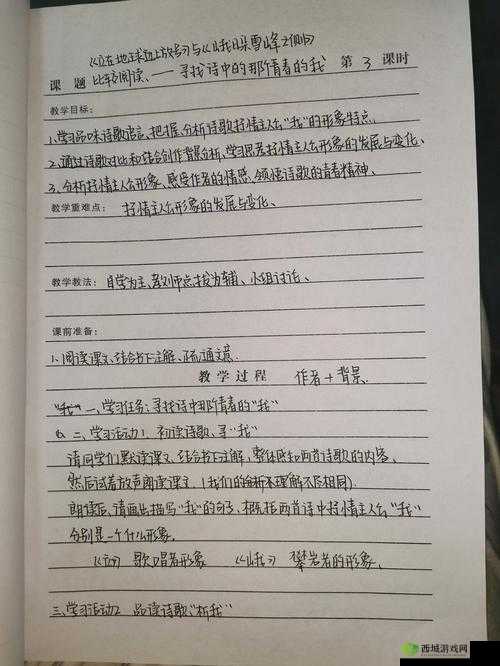 《立在地球边上放号》与《峨日朵雪峰之侧》
课 题 比较阅读、——寻找诗中的那个青春的我 第 3 课时
教学目标:
1、学习品味诗歌语言,把握、分析诗歌抒情主人公"我"的形象特点、
2、通过诗歌对比和结合创作背景分析,学习思考抒情主人公形象的发展与变化、
3、分析抒情主人公形象,感受作者的情感,领悟诗歌的青春精神、
教学重难点: 抒情主人公形象的发展与变化、
教学教法: 自学为主、教师点拨为辅、小组讨论、
课前准备:
1、阅读课文、结合书下注解、疏通文意、
教 学 过 程 作者+背景、
"我"一、学习任务:寻找诗中那个青春的"我"
二、学习活动1、初读诗歌、寻"我"
请同学们默读课文、结合书下注解,整体感知两首诗歌的内容、
然后试着放声朗读课文、(我们的分析不理解不尽相同)
朗读后,请画出描写"我"的句子,概括两首诗中抒情主人公"我"
分别是一个什么形象、
《立》 歌唱者形象 《峨》 攀岩者的形象、
三、学习活动2 品读诗歌"析我"
西城游戏网